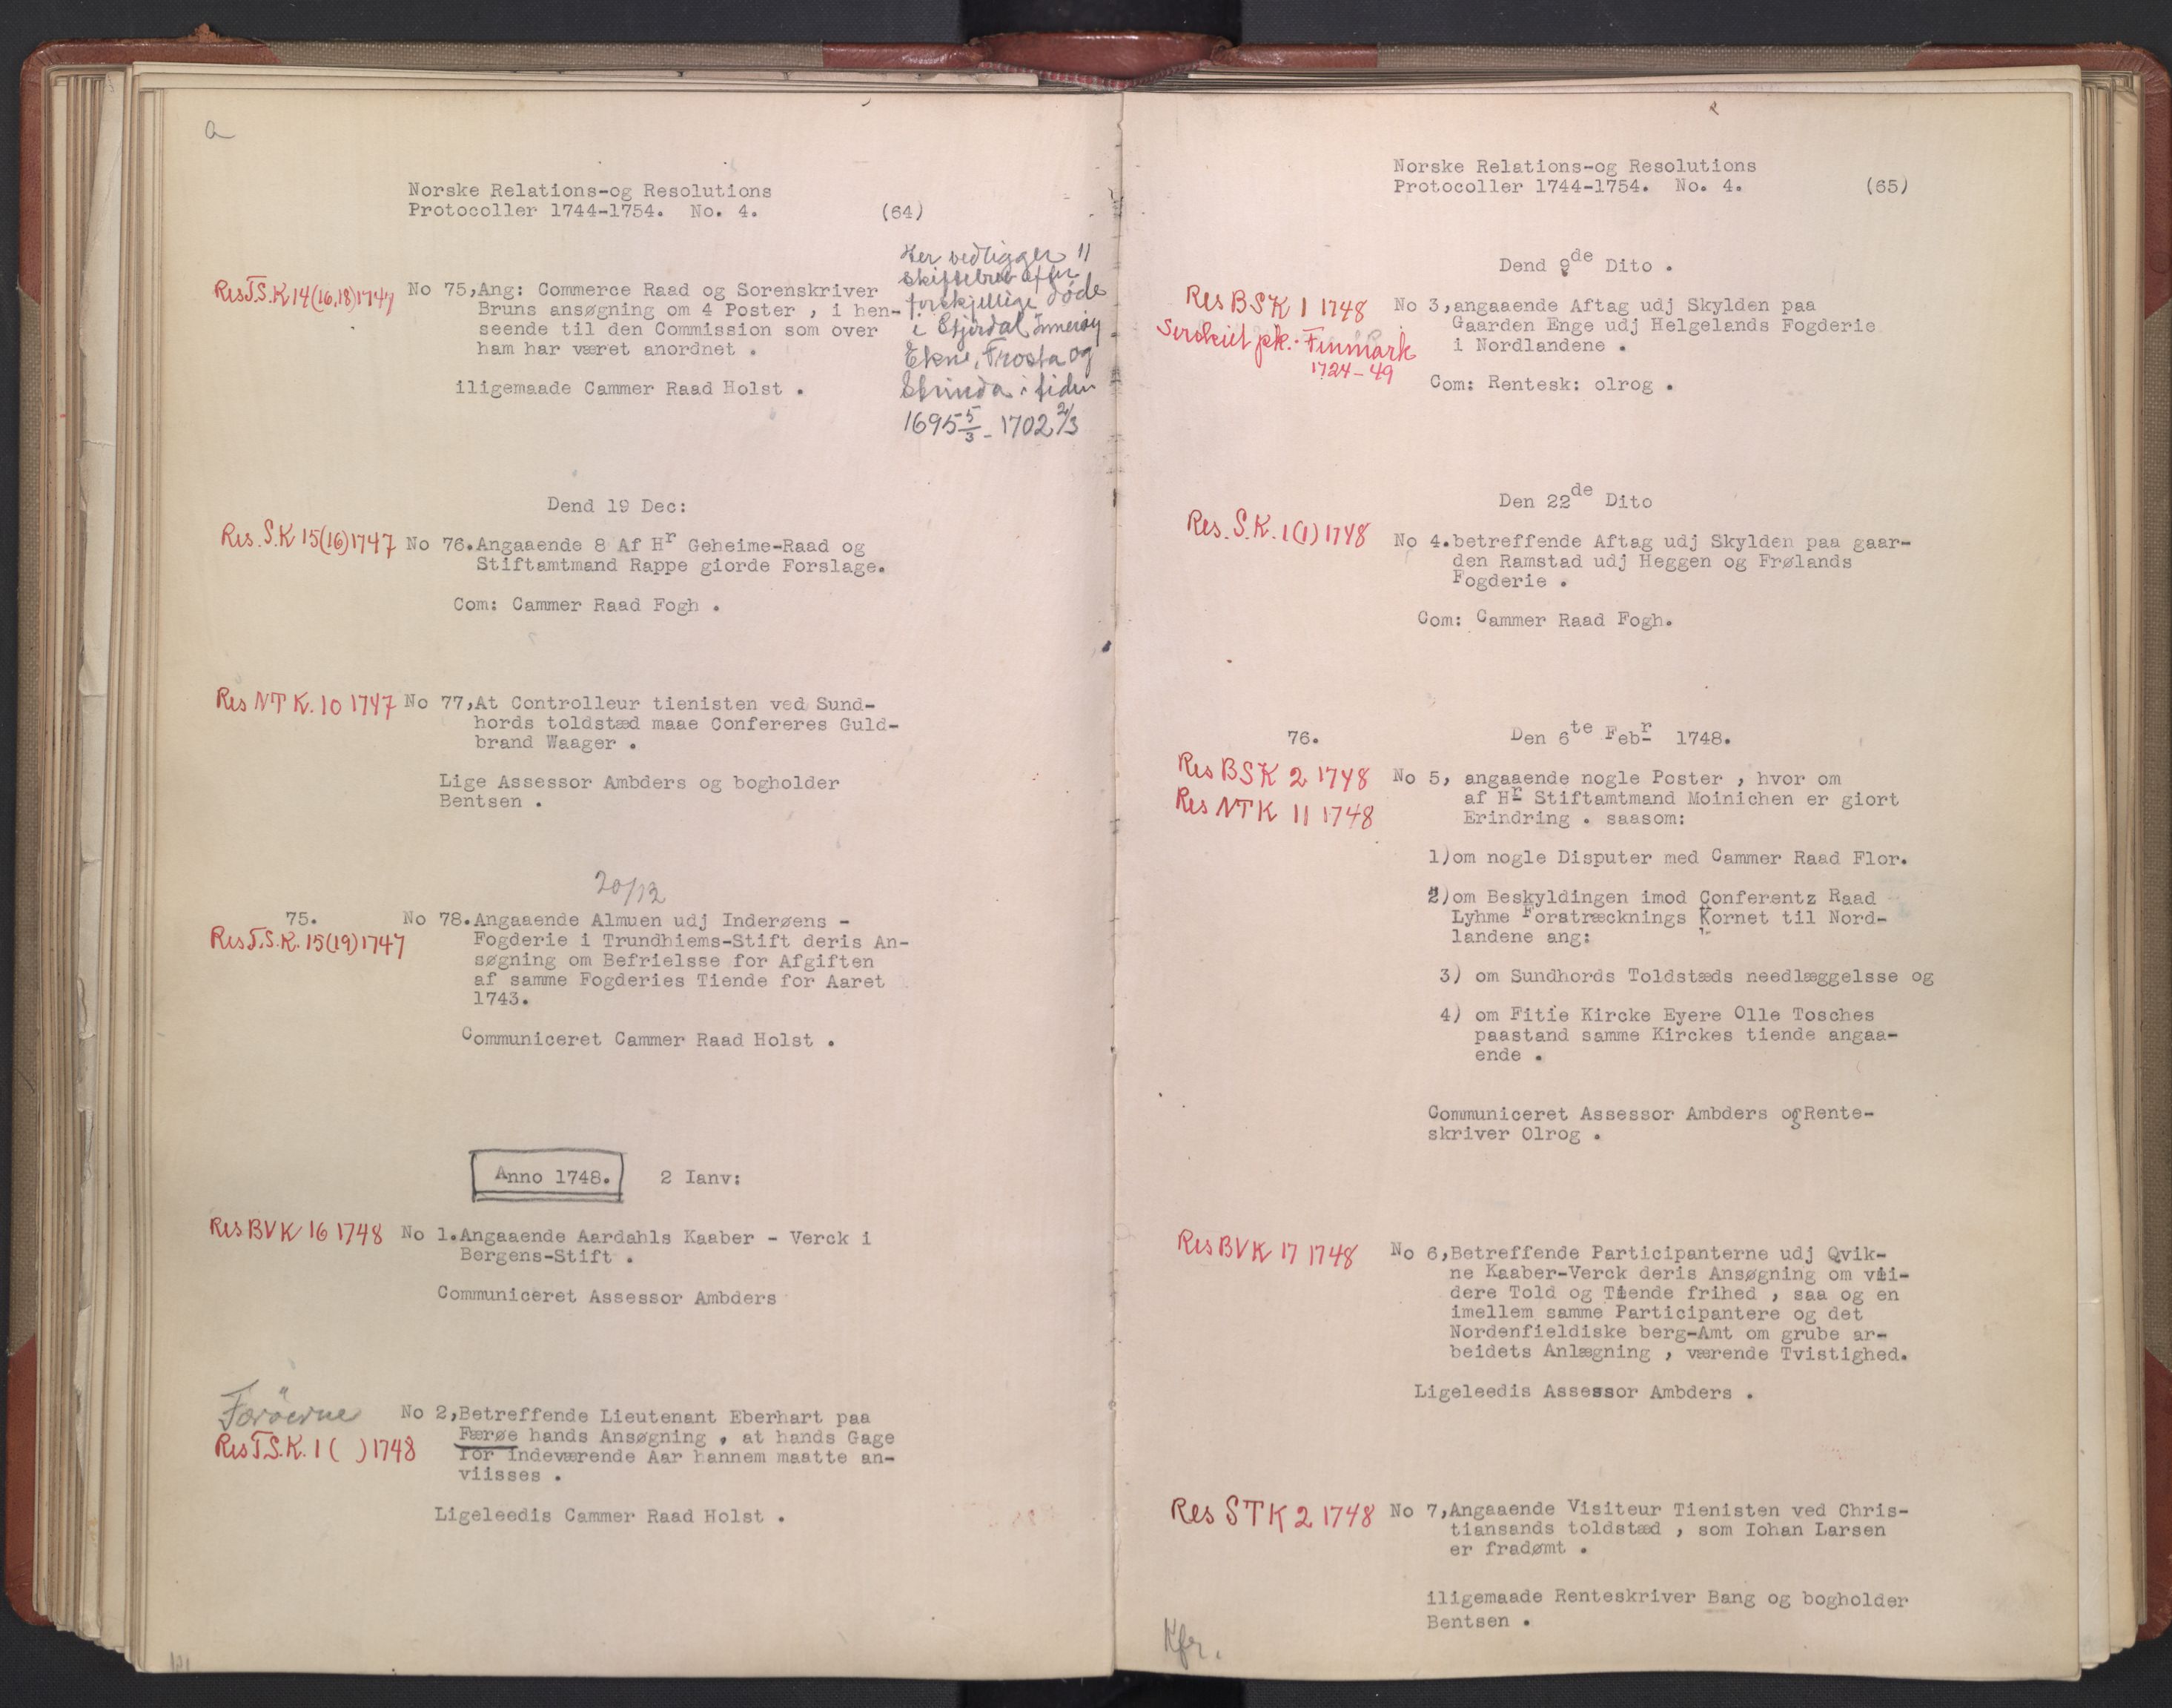 a
Norske Relations-og Resolutions
Protocoller 1744-1754. No. 4. (64)
Her vedligger 11
skiftebrev efter
forskjellige døde
i Stjørdal Inderøy
Ekne, Frosta og
Strinda i tiden
1695 5/3 - 1702 2/3
Res T.S.K 14(16,18)1747 No 75,Ang: Commerce Raad og Sorenskriver
Bruns ansøgning om 4 Poster , i hen-
seende til den Commission som over
ham har været anordnet .
iligemaade Cammer Raad Holst .
Dend 19 Dec:
Res. S.K 15(16)1747 No 76.Angaaende 8 Af Hr Geheime-Raad og
Stiftamtmand Rappe giorde Forslage.
Com: Cammer Raad Fogh .
Res NT K. 10 1747 No 77,At Controlleur tienisten ved Sund-
hords toldstæd maae Confereres Guld-
brand Waager .
Lige Assessor Ambders og bogholder
Bentsen .
20/12
75. No 78.Angaaende Almuen udj Inderøens -
Res T.S.K. 15(19)1747 Fogderie i Trundhiems-Stift deris An-
søgning om Befrielsse for Afgiften
af samme Fogderies Tiende for Aaret
1743.
Communiceret Cammer Raad Holst .
Anno 1748. 2 Ianv:
Res BVK 16 1748 No 1.Angaaende Aardahls Kaaber - Verck i
Bergens-Stift .
Communiceret Assessor Ambders
Færöerne No 2,Betreffende Lieutenant Eberhart paa
Res T.S.K. 1 ( ) 1748 Færøe hands Ansøgning , at hands Gage
for indeværende Aar hannem maatte an-
viisses .
Ligeleedis Cammer Raad Holst .
Norske Relations-og Resolutions
Protocoller 1744-1754. No. 4. (65)
Dend 9de Dito .
Res BSK 1 1748 No 3,angaaende Aftag udj Skylden paa
Gaarden Enge udj Helgelands Fogderie
i Nordlandene .
pk. Finmark
1724-49
Com: Rentesk: olrog .
Den 22de Dito
Res. S.K. 1(1) 1748 No 4.betreffende Aftag udj Skylden paa gaar-
den Ramstad udj Heggen og Frølands
Fogderie .
Com: Cammer Raad Fogh.
76. Den 6te Febr 1748.
Res BSK 2 1748 No 5, angaaende nogle Poster , hvor om
Res NTK 11 1748 af Hr Stiftamtmand Moinichen er giort
Erindring . saasom:
1)om nogle Disputer med Cammer Raad Flor.
2)om Beskyldingen imod Conferentz Raad
Lyhme Forstræcknings Kornet til Nord-
landene ang:
3) om Sundhords Toldstæds needlæggelsse og
4) om Fitie Kircke Eyere Olle Tosches
paastand samme Kirckes tiende angaa-
ende .
Communiceret Assessor Ambders og Rente-
skriver Olrog .
Res BVK 17 1748 No 6,Betreffende Participanterne udj Qvik-
ne Kaaber-Verck deris Ansøgning om vii-
dere Told og Tiende frihed , saa og en
imellem samme Participantere og det
Nordenfieldiske berg-Amt om grube ar-
beidets Anlægning , værende Tvistighed.
Ligeleedis Assessor Ambders .
Res STK 2 1748 No 7,Angaaende Visiteur Tienisten ved Chris-
tiansands toldstæd , som Iohan Larsen
er fradømt .
iligemaade Renteskriver Bang og bogholder
Bentsen .
Kfr.